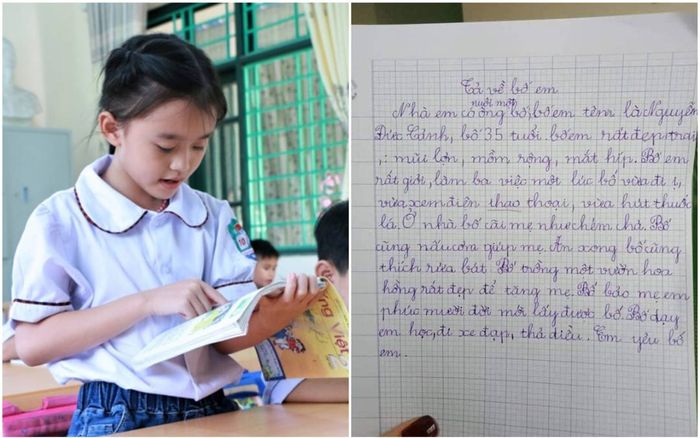 ng Việt
Tả về bố em
nuôi một
Nhà em có ông bố, bố em têm là Nguyễn
Đức Cinh, bố 35 tuổi bố em rất đẹp trai
,: mũi lớn, mồm rộng, mắt híp. Bố em
rất giỏi, làm ba việc một lúc bố vừa đi ị,
vừa xem điện thao thoại, vừa hút thuốc
lá. Ở nhà bố cãi mẹ như chém chả. Bố
cũng nấu cơm giúp mẹ. Ăn xong bố cũng
thích rửa bát. Bố trồng một vườn hoa
hồng rất đẹp để tặng mẹ. Bố bảo mẹ em
phúc mười đời mới lấy được bố. Bố dạy
em học, đi xe đạp, thả diều. Em yêu bố
em.